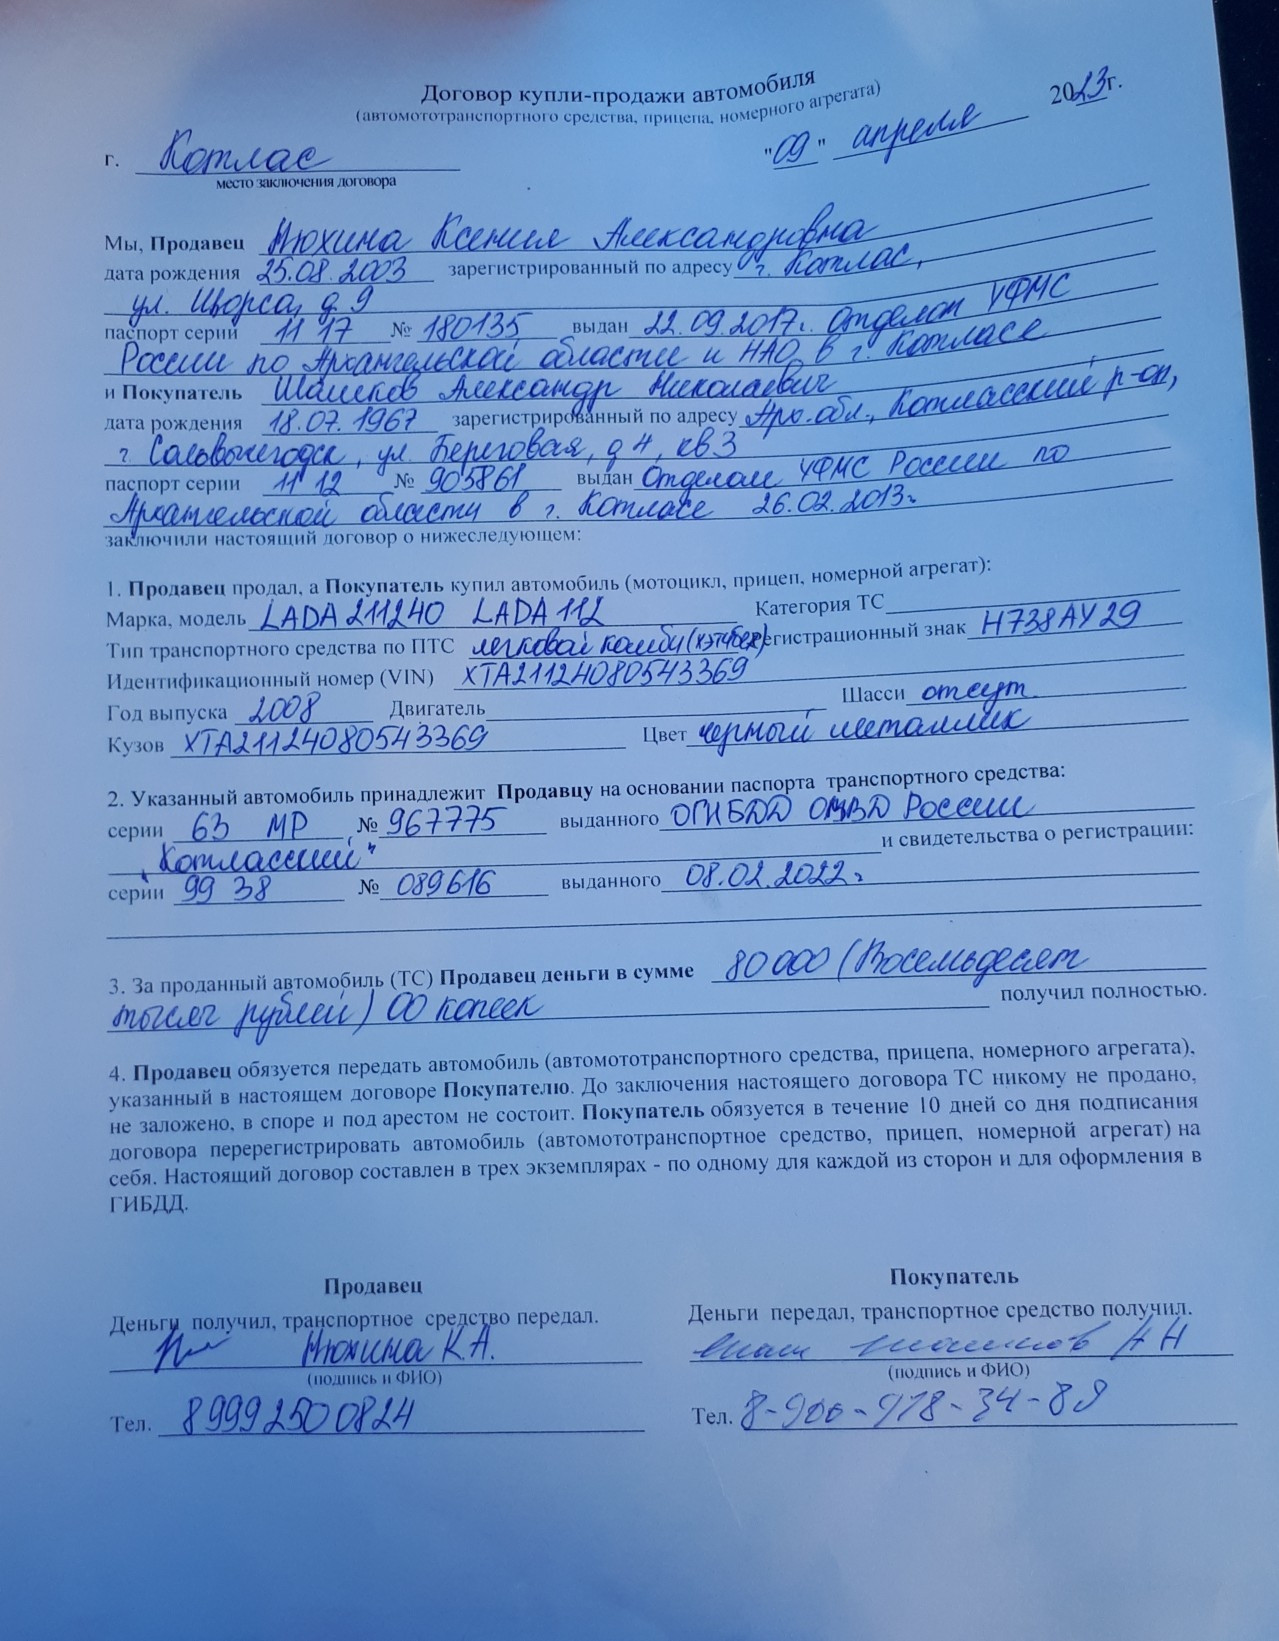 Договор купли-продажи автомобиля
(автомототранспортного средства, прицепа, номерного агрегата)
г. Котлас "09" апреля 2023г.
место заключения договора
Мы, Продавец Ксения Александровна
дата рождения 25.08.2003 зарегистрированный по адресу г. Котлас,
ул. Щорса, д. 9
паспорт серии 11 17 № 180135 выдан 22.09.2017г. Отделом УФМС
России по Архангельской области и НАО в г. Котласе
и Покупатель Александр Николаевич
дата рождения 18.07.1967 зарегистрированный по адресу Арх. обл., Котласский р-он,
г. Сольвычегодск, ул. Береговая, д 4, кв 3
паспорт серии 11 12 № 903861 выдан Отделом УФМС России по
Архангельской области в г. Котласе 26.02.2013г
заключили настоящий договор о нижеследующем:
1. Продавец продал, а Покупатель купил автомобиль (мотоцикл, прицеп, номерной агрегат):
Марка, модель LADA 211240 LADA 112 Категория ТС
Тип транспортного средства по ПТС легковой комби (хэтчбек) регистрационный знак Н738АУ29
Идентификационный номер (VIN) XTA21124080543369
Год выпуска 2008 Двигатель Шасси отсут.
Кузов XTA21124080543369 Цвет черный металлик
2. Указанный автомобиль принадлежит Продавцу на основании паспорта транспортного средства:
серии 63 МР № 967775 выданного ОГИБДД ОМВД России
"Котласский" и свидетельства о регистрации:
серии 99 38 № 089616 выданного 08.02.2022г
3. За проданный автомобиль (ТС) Продавец деньги в сумме 80 000 (Восемьдесят
тысяч рублей) 00 копеек получил полностью.
4. Продавец обязуется передать автомобиль (автомототранспортного средства, прицепа, номерного агрегата),
указанный в настоящем договоре Покупателю. До заключения настоящего договора ТС никому не продано,
не заложено, в споре и под арестом не состоит. Покупатель обязуется в течение 10 дней со дня подписания
договора перерегистрировать автомобиль (автомототранспортное средство, прицеп, номерной агрегат) на
себя. Настоящий договор составлен в трех экземплярах - по одному для каждой из сторон и для оформления в
ГИБДД.
Продавец Покупатель
Деньги получил, транспортное средство передал. Деньги передал, транспортное средство получил.
К.А. А Н
(подпись и ФИО) (подпись и ФИО)
Тел. 89992500824 Тел. 8-900-918-34-89